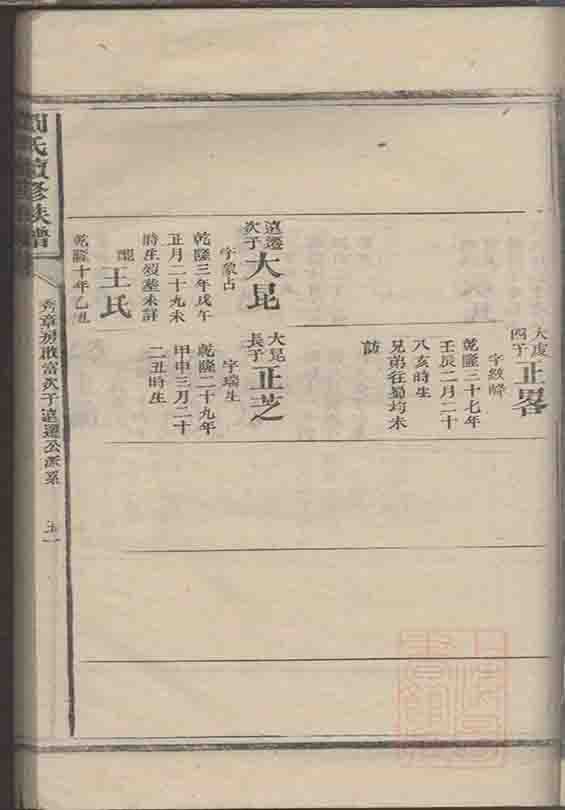 大虔
四子
正畧
字紋峰
乾隆二十七年
壬辰二月二十
八亥時生
兄弟往蜀均未
訪
遠遷
次子
大昆
字象占
乾隆三年戊午
正月二十九未
時生歿塟未詳
配
王氏
乾隆十年乙丑
大昆
長子
正芝
字瑞生
乾隆二十九年
甲申三月二十
二丑時生
氏續修族譜
秀章房啟富次子遠遷公派系